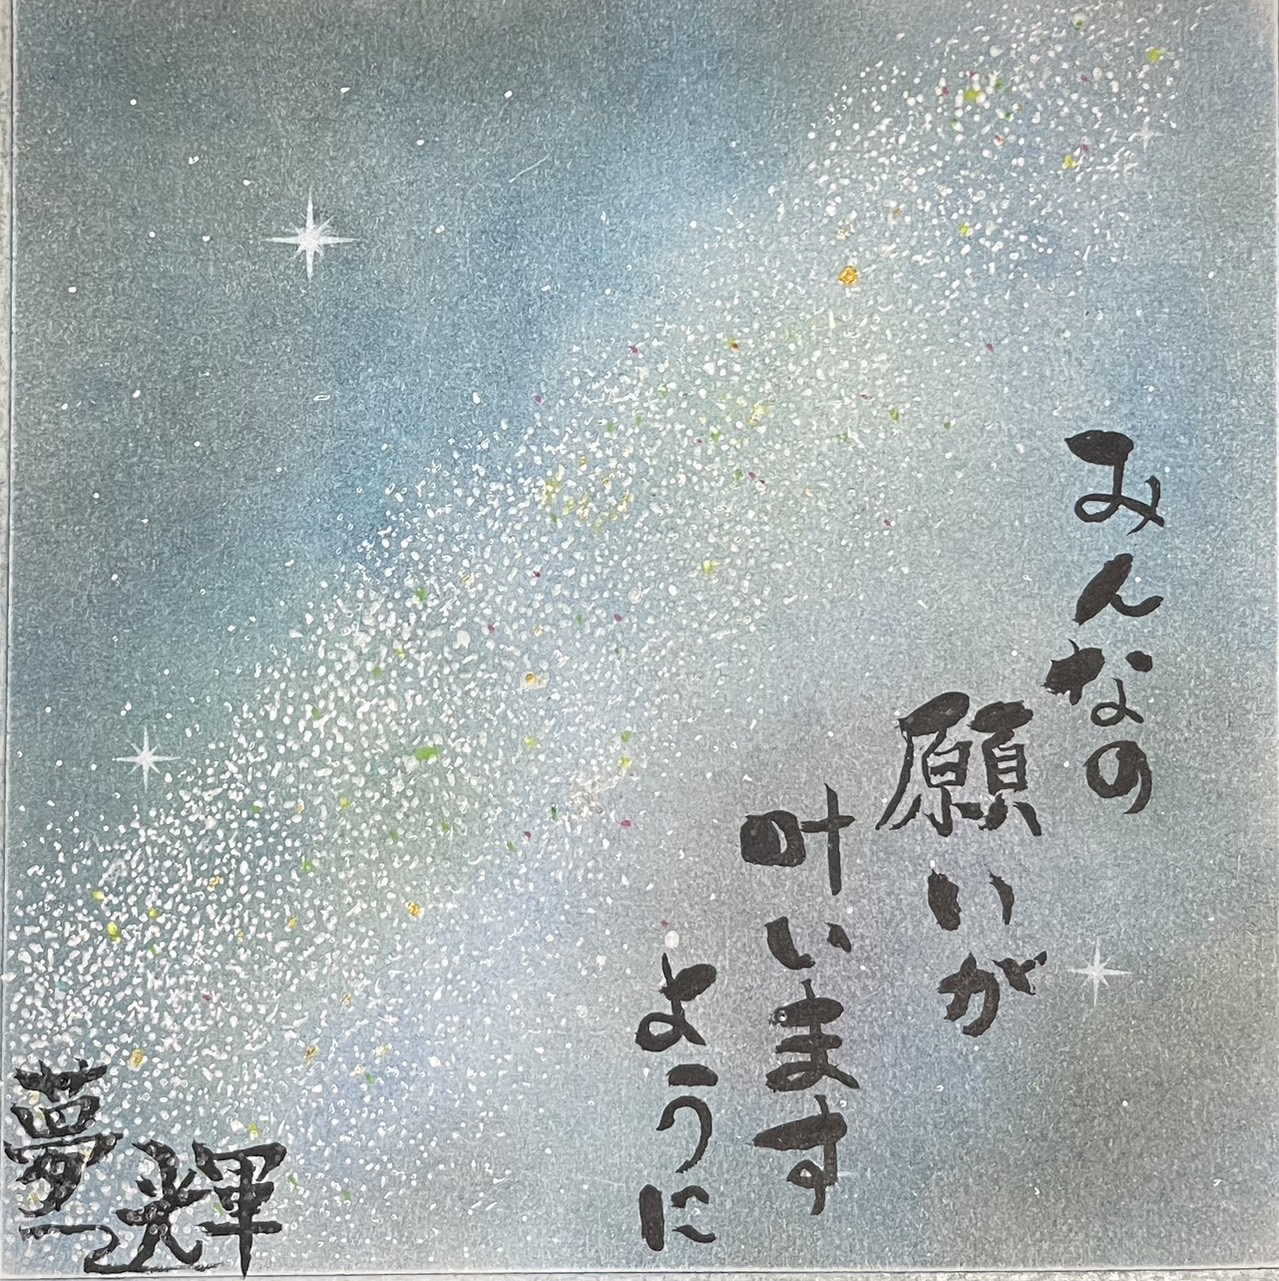 みんなの
願いが
叶います
ように
夢輝